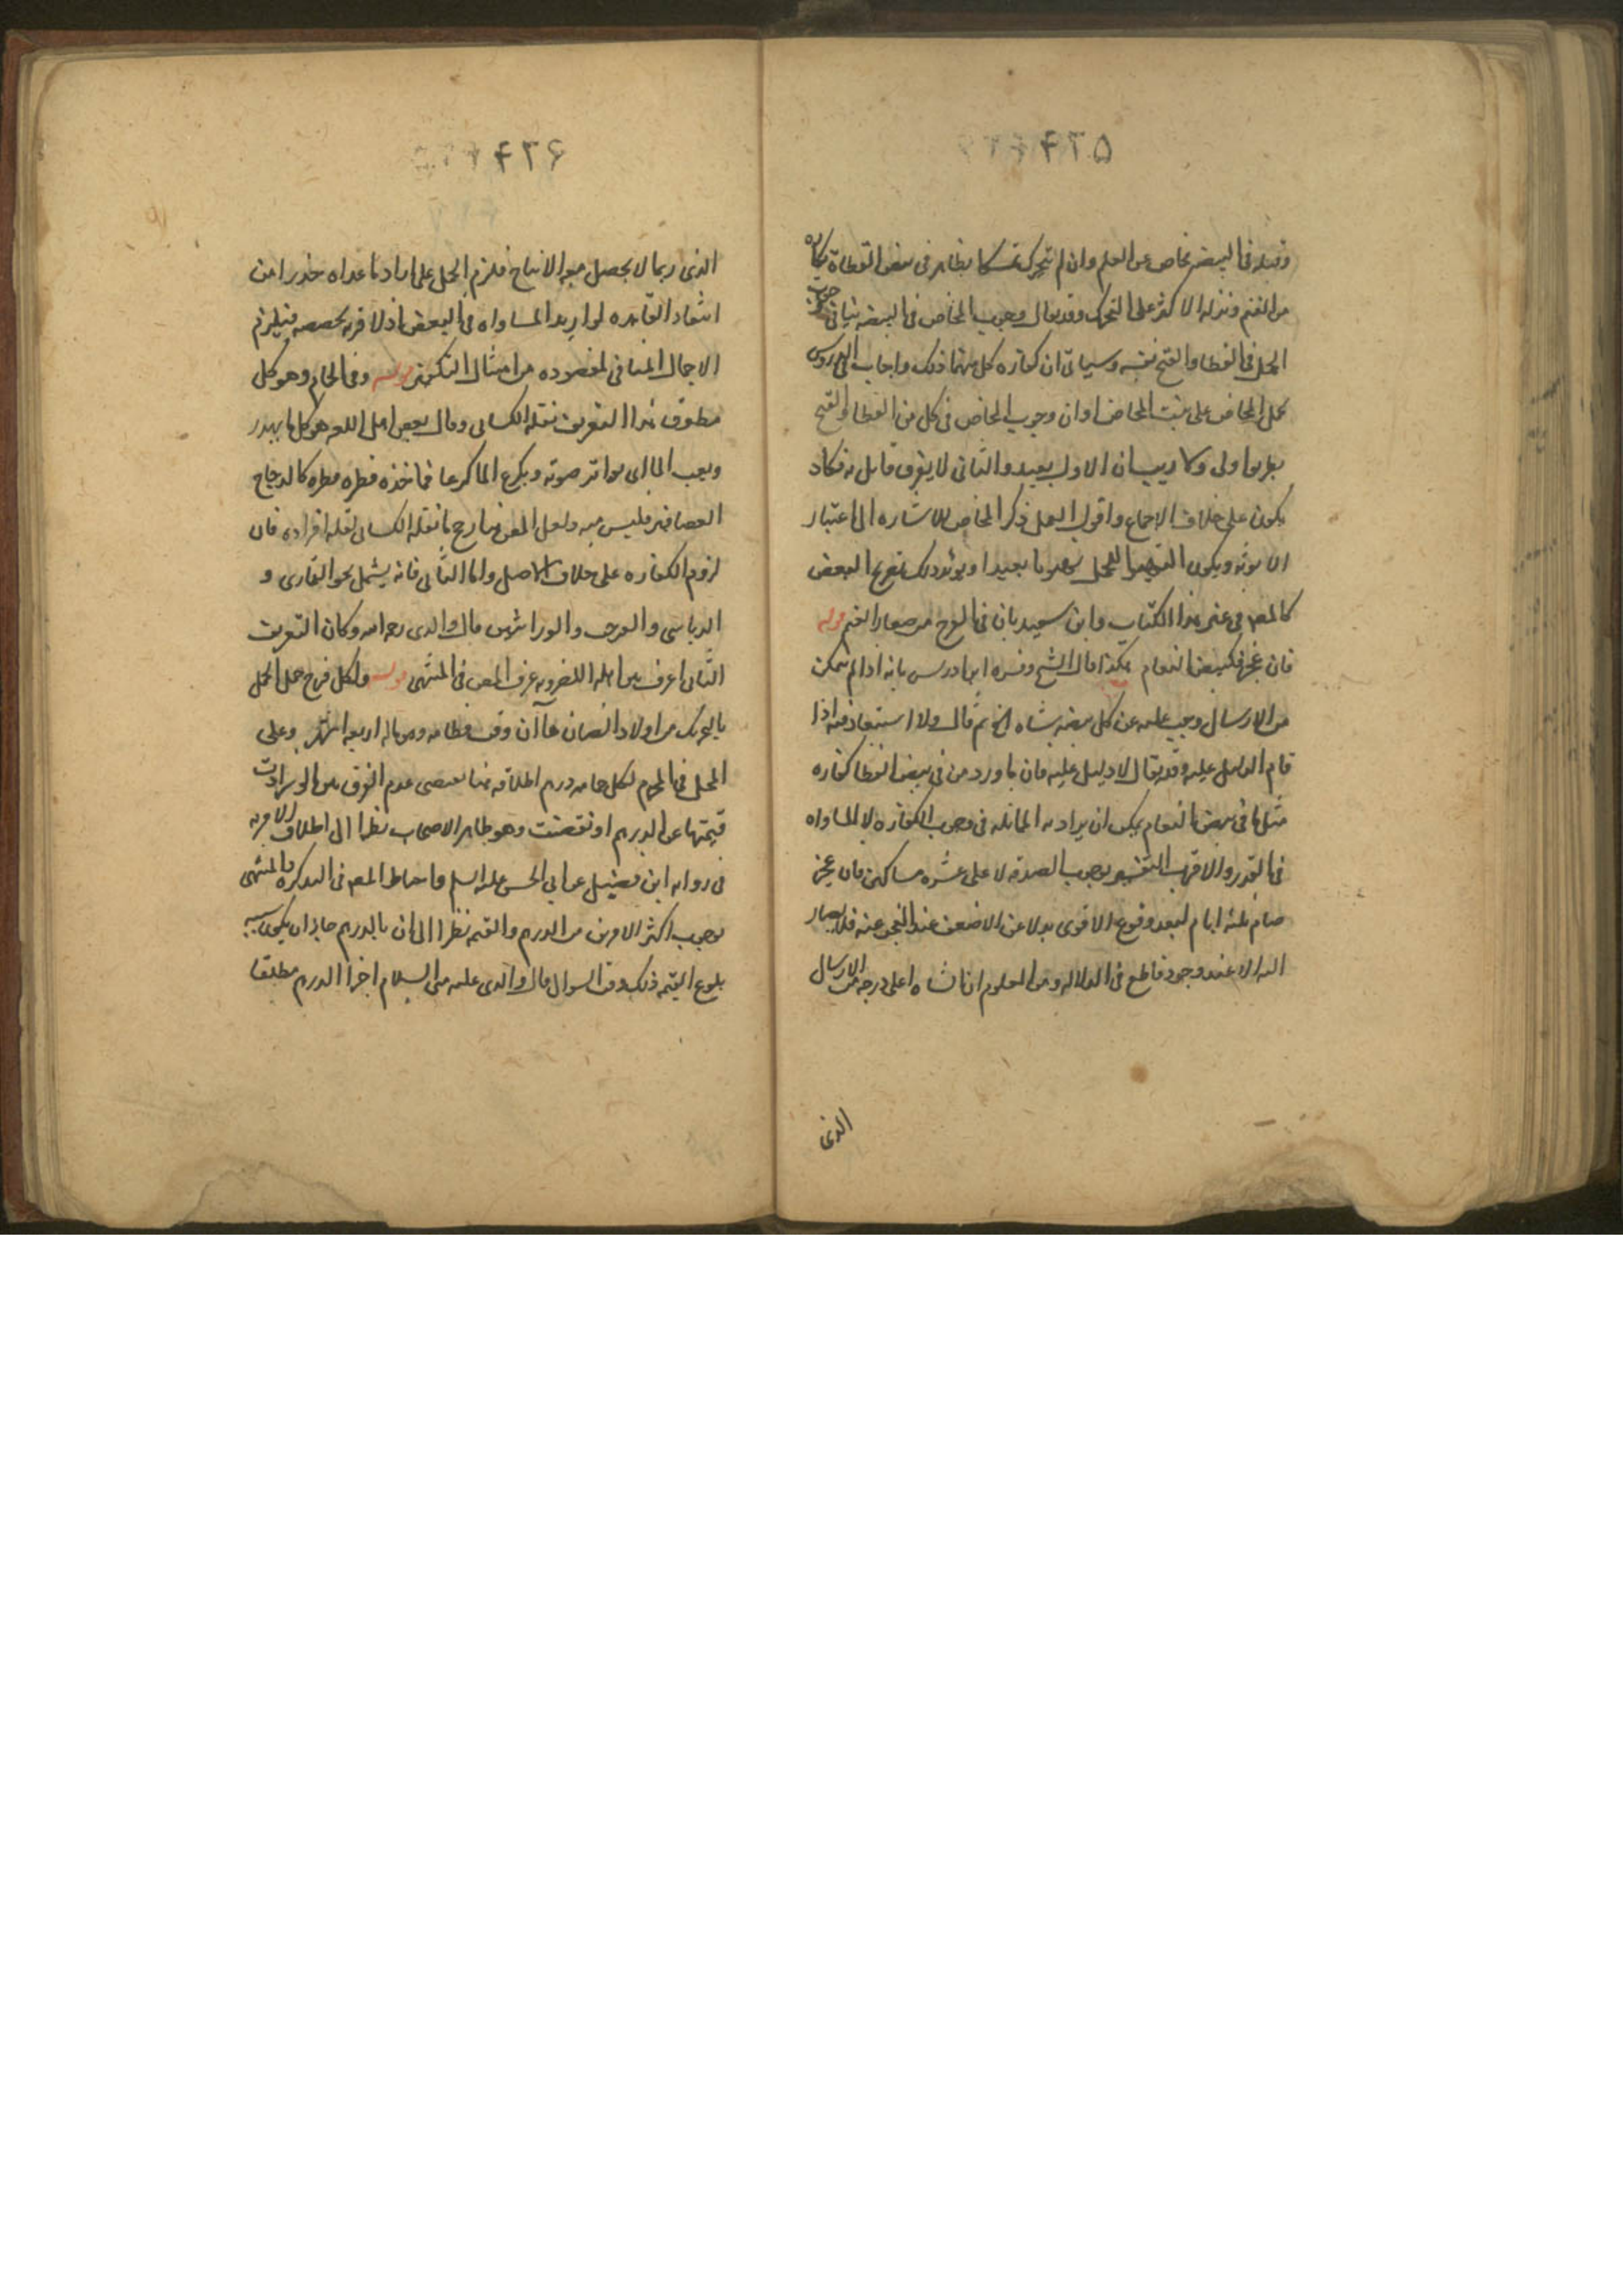 ۴۳۵
وقيل في البيضة مخاض من الغنم وان لم تتحرك تمسكا بظاهر في بيض القطاة بكارة
من الغنم ونزله الاكثر على التحرك وقد يقال وجوب المخاض في البيضة ينافي وجوب
الحمل في القطا والقبج نفسه وسياتي ان كفارة كل منهما ذلك واجاب الدروس
بحمل المخاض على بنت المخاض او ان وجوب المخاض في كل من القطا والقبج
بطريق اولى ولا ريب ان الاول بعيد والثاني لا يعرف قايل به فكاد
يكون على خلاف الاجماع واقول لعل ذكر المخاض للاشارة الى اعتبار
الانوثة ويكون
كالمصنف في غير هذا الكتاب وابن سعيد بان في الفرخ من صغار الغنم قوله
فان عجز فكبيض النعام هكذا قال الشيخ وفسره ابن ادريس بانه اذا لم يتمكن
من الارسال وجب عليه عن كل بيضة شاة الخ ثم قال ولا استبعاد فيه اذا
قام الدليل عليه وقد يقال لا دليل عليه فان ما ورد من في بيض القطا كفارة
مثل ما في بيض النعام يمكن ان يراد به المماثلة في وجوب الكفارة لا المساواة
في القدر والاقرب التفسير بوجوب الصدقة لا على عشرة مساكين فان عجز
صام ثلثة ايام لبعد وقوع الاقوى بدلا عن الاضعف عند العجز عنه فلا يصار
اليه الا عند وجود قاطع في الدلالة ومن المعلوم ان الشاة اعلى درجة من الارسال
الذي
۴۳۶
الذي ربما لا يحصل معه الانتاج فلزم الحمل على ارادة ما عداه حذرا من
انتفاء الفايدة لو اريد المساواة في البعض اذ لا قرينة مخصصة فيلزم
الاجمال المنافي لمقصوده من امتثال التكليف قوله وفي الحمام وهو كل
مطوق هذا التعريف نقله الكسائي وقال بعض اهل اللغة هو كل ما يهدر
ويعب الماء اي يواتر صوته ويكرع الماء كرعا فما اخذه قطرة قطرة كالدجاج
العصافير فليس منه ولعل المصنف رجح ما نقله الكسائي لقلة افراده فان
لزوم الكفارة على خلاف الاصل واما الثاني فانه يشمل نحو القماري و
الدباسي والورشين قال والدي رحمه الله وكان التعريف
الثاني اعرف بين اهل اللغة وبه عرف المصنف في المنتهى قوله ولكل فرخ حمل الحمل
بالتحريك من اولاد الضان ما آن وقت فطامه وماله اربعة اشهر وعلى
المحل في الحرم لكل حمامة درهم اطلاقه هنا يقتضي عدم الفرق بين ما لو زادت
قيمتها عن الدرهم او نقصت وهو ظاهر الاصحاب نظرا الى اطلاق الامر به
في رواية ابن فضيل عن ابي الحسن عليه السلم واحتاط المصنف في التذكرة والمنتهى
بوجوب اكثر الامرين من الدرهم والقيمة نظرا الى ان بالدرهم جاز ان يكون بسبب
بلوغ القيمة ذلك وقت السوال قال والدي عليه من السلام اجزا الدرهم مطلقا